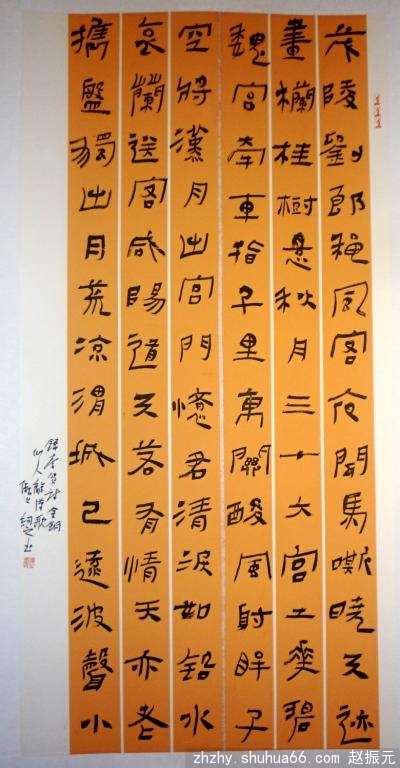 茂陵劉郎穐風客夜聞馬嘶曉天迹
畫欄桂樹悬秋月三十六宫土華碧
魏宫牽車指千里東關酸風射眸子
空將漢月出宫門憶君清淚如鉛水
哀蘭送客咸陽道天若有情天亦老
攜盤獨出月荒凉渭城已遠波聲小
錄李賀詩金銅
仙人辭漢歌
zhzhy.shuhua66.com 赵振元